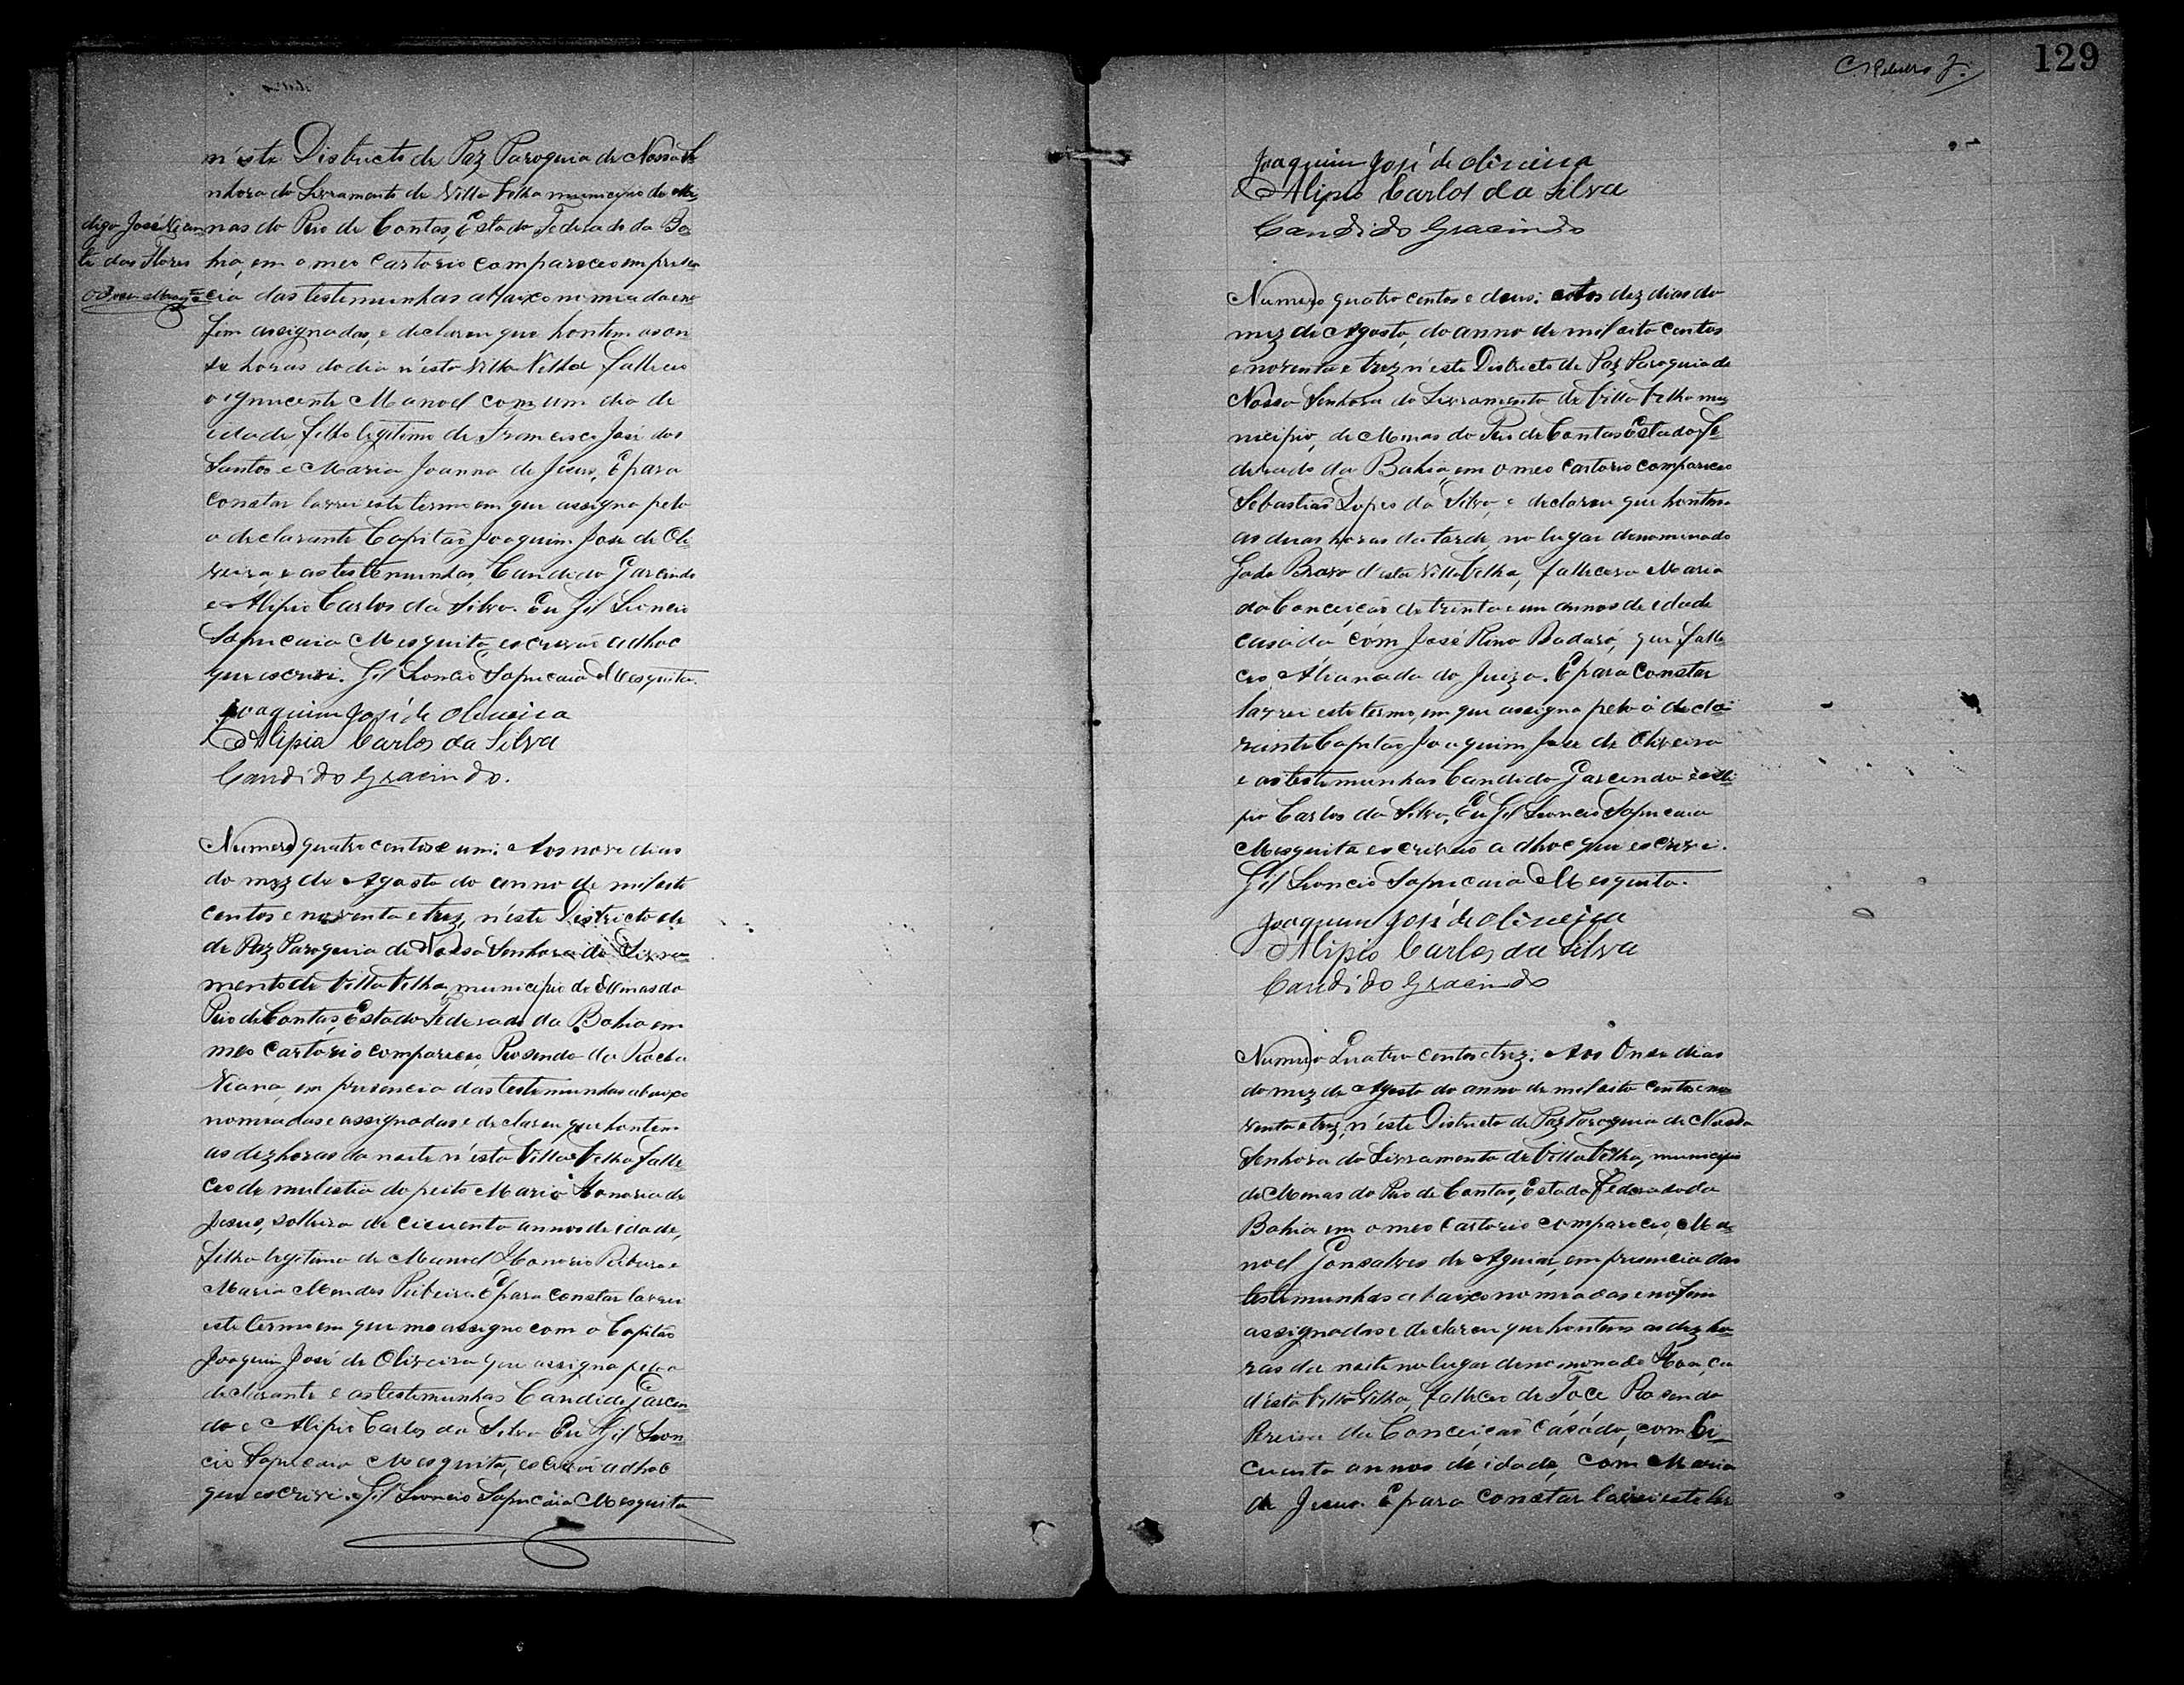 n'este Districto de Paz Paroquia de Nossa Se
nhora do Livramento de Villa Velha municipio de Mi-
digo José Vicen- nas do Rio de Contas, Estado Federado da Ba-
te das Flores hia, em o meo Cartorio compareceo em presen
cia das testemunhas abaixo nomiada e no
fim assignadas, e declarou que hontem as on
se horas do dia n'esta Villa Velha falleceo
o ignucente Manoel com um dia de
idade filho legitimo de Francisco José dos
Santos e Maria Joanna de Jesus, E para
constar lavrei este termo em que assigna pelo
o declarante Capitaõ Joaquim José de Oli-
veira, e as testemunhas, Candido Garcindo
e Alipio Carlos da Silva. Eu Gil Leoncio
Sapucaia Mesquita, escrivaõ adhoc
que escrivi. Gil Leoncio Sapucaia Mesquita.
Joaquim José de Oliveira
Alipio Carlos da Silva
Candido Gracindo.
Numero quatro centos e um: Aos nove dias
do mez de Agosto do anno de mil oito
centos e noventa e trez, n'este Districto de
de Paz Paroquia de Nossa Senhora do Livra-
mento de Villa Velha, municipio de Minas do
Rio de Contas, Estado Federado da Bahia em
meo Cartorio compareceo, Rosendo da Rocha
Viana, em presencia das testemunhas abaixo
nomiadas e assignadas e declarou que hontem
as dez horas da noite n'esta Villa Velha falle-
ceo de mulestia do peito Maria Honoria de
Jesus, solteira de cicuenta annos de idade,
filha legitima de Manoel Honorio Ribeiro e
Maria Mendes Ribeiro E para constar lavrei
este termo em que me assigno com o Capitaõ
Joaquim José de Oliveira que assigna pelo o
declarante e as testemunhas Candido Garcin-
do e Alipio Carlos da Silva Eu Gil Leon-
cio Sapucaia Mesquita, escrivaõ adhoc
que escrivi. Gil Leoncio Sapucaia Mesquita
129
Joaquim José de Oliveira
Alipio Carlos da Silva
Candido Gracindo
Numero quatro centos e deus: aos dez dias do
mez de Agosto, do anno de mil oito centos
e noventa e trez n'este Districto de Paz Paroquia de
Nossa Senhora do Livramento de Villa Velha mu-
nicipio, de Minas do Rio de Contas Estado Fe-
derado da Bahia, em o meo Cartorio compareceo
Sebastiaõ Lopes da Silva, e declarou que hontem
as duas horas da tarde, no lugar denominado
Gado Bravo d'esta Villa Velha, fallecera Maria
da Conceiçaõ de trinta e um annos de idade
casada com José Rino Badaró, que falle-
ceo Alranada do Juizo. E para constar
lavrei este termo, em que assigna pelo o decla-
rante Capitaõ Joaquim José de Oliveira
e as testemunhas Candido Garcindo e Ali-
pio Carlos da Silva, Eu Gil Leoncio Sapucaia
Mesquita escrivaõ adhoc que escrivi.
Gil Leoncio Sapucaia Mesquita.
Joaquim José de Oliveira
Alipio Carlos da Silva
Candido Gracindo
Numero Quatro centos e trez: Aos Onze dias
do mez de Agosto do anno de mil oito centos e no-
venta e trez, n'este Districto de Paz Paroquia de Nossa
Senhora do Livramento de Villa Velha, municipio
de Minas do Rio de Contas, Estado Federado da
Bahia em o meo Cartorio compareceo, Ma-
noel Gonsalves de Aguiar, em presencia das
testemunhas abaixo nomiadas e no fim
assignadas e declarou que hontem as dez ho-
ras da noite no lugar denominado
d'esta Villa Velha, falleceo de Toce Rosendo
Pereira da Conceiçaõ casado, com Ci-
cuenta annos de idade, com Maria
de Jesus. E para constar lavrei este ter